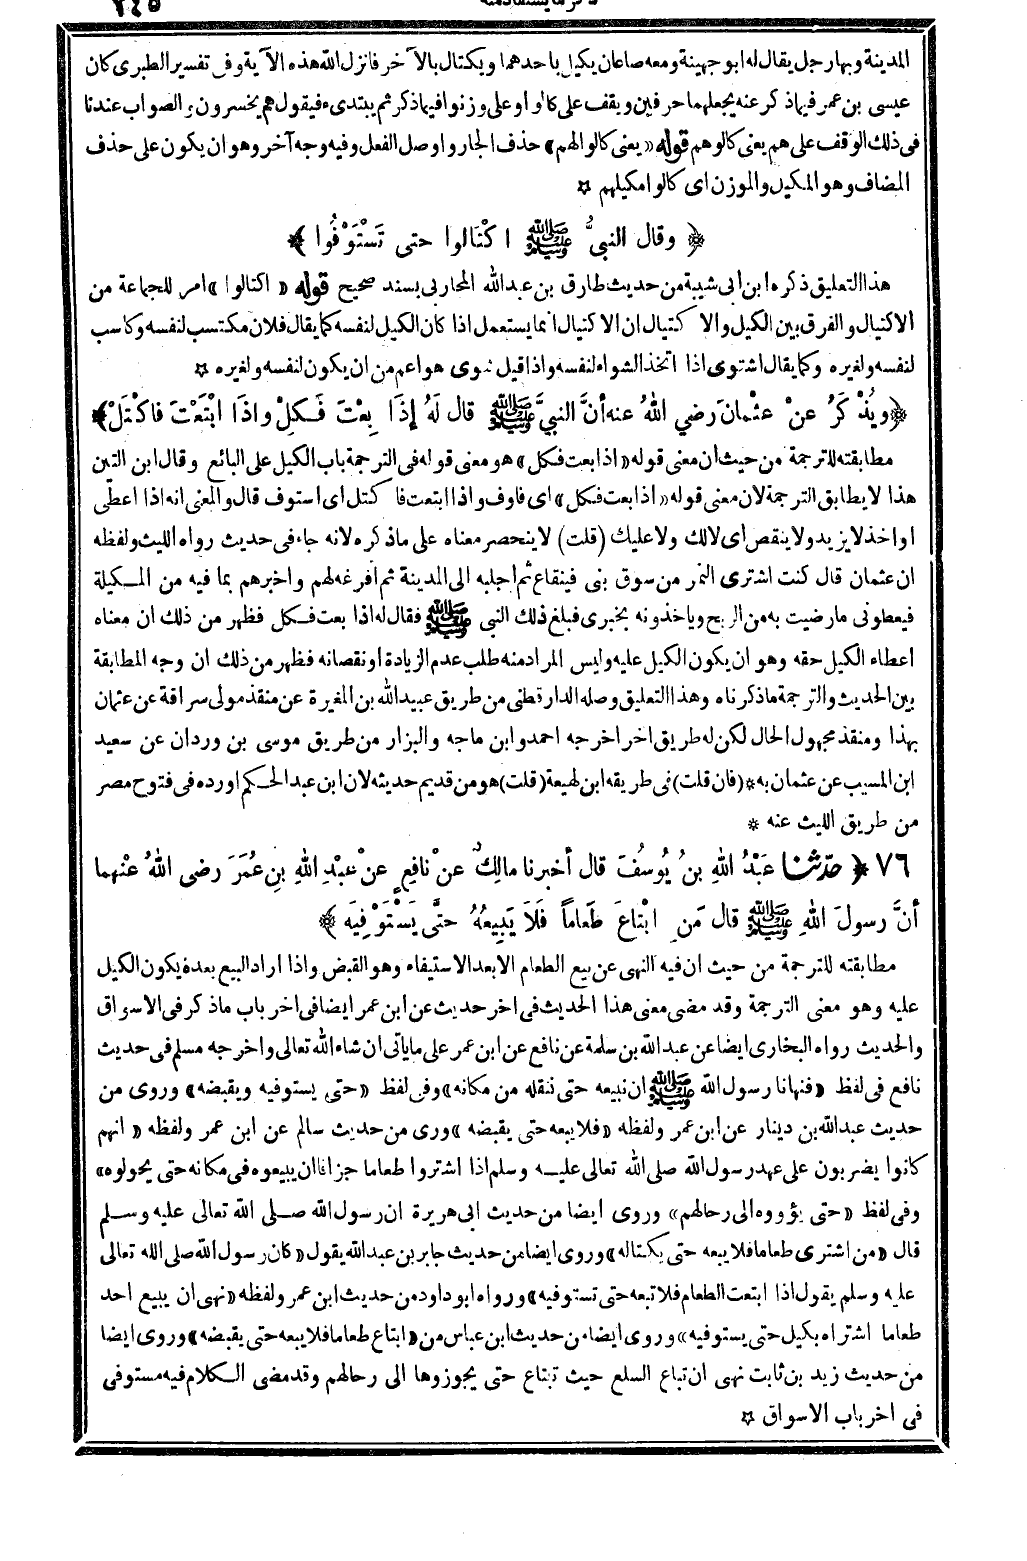 ٢٤٥
المدينة وبها رجل يقال له ابو جهينة ومعه صاعان يكيل باحدهما ويكتال بالآخر فانزل الله هذه الآية وفي تفسير الطبري كان
عيسى بن عمر فيما ذكر عنه يجعلهما حرفين ويقف على كالوا وعلى وزنوا فيما ذكر ثم يبتدىء فيقول هم يخسرون والصواب عندنا
في ذلك الوقف على هم يعني كالوهم قوله «يعني كالوا لهم» حذف الجار واوصل الفعل وفيه وجه آخر وهو ان يكون على حذف
المضاف وهو المكيل والموزن اى كالوا مكيلهم ✡
﴿ وقال النبيُّ ﷺ اكْتَالوا حتى تَسْتَوْفُوا ﴾
هذا التعليق ذكره ابن ابي شيبة من حديث طارق بن عبد الله المحاربي بسند صحيح قوله «اكتالوا» امر للجماعة من
الاكتيال والفرق بين الكيل والاكتيال ان الاكتيال انما يستعمل اذا كان الكيل لنفسه كما يقال فلان مكتسب لنفسه وكاسب
لنفسه ولغيره وكما يقال اشتوى اذا اتخذ الشواء لنفسه واذا قيل شوى هو اعم من ان يكون لنفسه ولغيره ✡
﴿ ويُذْكَرُ عنْ عثْمانَ رضي اللهُ عنه أنَّ النبيَّ ﷺ قال لَهُ إذَا بِعْتَ فَكِلْ واذَا ابْتَعْتَ فاكْتَلْ ﴾
مطابقته للترجمة من حيث ان معنى قوله «اذا بعت فكل» هو معنى قوله في الترجمة باب الكيل على البائع وقال ابن التين
هذا لا يطابق الترجمة لان معنى قوله «اذا بعت فكل» اى فاوف واذا ابتعت فاكتل اى استوف قال والمعنى انه اذا اعطى
او اخذ لا يزيد ولا ينقص اى لا لك ولا عليك (قلت) لا ينحصر معناه على ما ذكره لانه جاء في حديث رواه الليث ولفظه
ان عثمان قال كنت اشترى التمر من سوق بني قينقاع ثم اجلبه الى المدينة ثم افرغه لهم واخبرهم بما فيه من المكيلة
فيعطونى ما رضيت به من الربح وياخذونه بخبرى فبلغ ذلك النبي ﷺ فقال له اذا بعت فكل فظهر من ذلك ان معناه
اعطاء الكيل حقه وهو ان يكون الكيل عليه وليس المراد منه طلب عدم الزيادة او نقصانه فظهر من ذلك ان وجه المطابقة
بين الحديث والترجمة ما ذكرناه وهذا التعليق وصله الدارقطني من طريق عبيد الله بن المغيرة عن منقذ مولى سراقة عن عثمان
بهذا ومنقذ مجهول الحال لكن له طريق اخر اخرجه احمد وابن ماجه والبزار من طريق موسى بن وردان عن سعيد
ابن المسيب عن عثمان به * (فان قلت) في طريقه ابن لهيعة (قلت) هو من قديم حديثه لان ابن عبد الحكم اورده في فتوح مصر
من طريق الليث عنه *
٧٦ ﴿ حدّثنا عَبْدُ اللهِ بنُ يُوسُفَ قال أخبرنا مالِكٌ عنْ نافِعٍ عنْ عبْدِ اللهِ بنِ عُمَرَ رضي اللهُ عنْهما
أنَّ رسولَ اللهِ ﷺ قال مَنِ ابْتاعَ طَعاماً فَلَا يَبِيعُهُ حتَّى يَسْتَوْفِيَه ﴾
مطابقته للترجمة من حيث ان فيه النهى عن بيع الطعام الا بعد الاستيفاء وهو القبض واذا اراد البيع بعده يكون الكيل
عليه وهو معنى الترجمة وقد مضى معنى هذا الحديث في اخر حديث عن ابن عمر ايضا في اخر باب ما ذكر في الاسواق
والحديث رواه البخارى ايضا عن عبد الله بن سلمة عن نافع عن ابن عمر على ما ياتي ان شاء الله تعالى واخرجه مسلم في حديث
نافع في لفظ «فنهانا رسول الله ﷺ ان نبيعه حتى ننقله من مكانه» وفي لفظ «حتى يستوفيه ويقبضه» وروى من
حديث عبد الله بن دينار عن ابن عمر ولفظه «فلا يبعه حتى يقبضه» ورى من حديث سالم عن ابن عمر ولفظه «انهم
كانوا يضربون على عهد رسول الله صلى الله تعالى عليه وسلم اذا اشتروا طعاما جزافا ان يبيعوه في مكانه حتى يحولوه»
وفي لفظ «حتى يؤووه الى رحالهم» وروى ايضا من حديث ابى هريرة ان رسول الله صلى الله تعالى عليه وسلم
قال «من اشترى طعاما فلا يبعه حتى يكتاله» وروى ايضا من حديث جابر بن عبد الله يقول «كان رسول الله صلى الله تعالى
عليه وسلم يقول اذا ابتعت الطعام فلا تبعه حتى تستوفيه» ورواه ابو داود من حديث ابن عمر ولفظه «نهى ان يبيع احد
طعاما اشتراه بكيل حتى يستوفيه» وروى ايضا من حديث ابن عباس من «ابتاع طعاما فلا يبعه حتى يقبضه» وروى ايضا
من حديث زيد بن ثابت نهى ان تباع السلع حيث تبتاع حتى يجوزوها الى رحالهم وقد مضى الكلام فيه مستوفى
في اخر باب الاسواق ✡